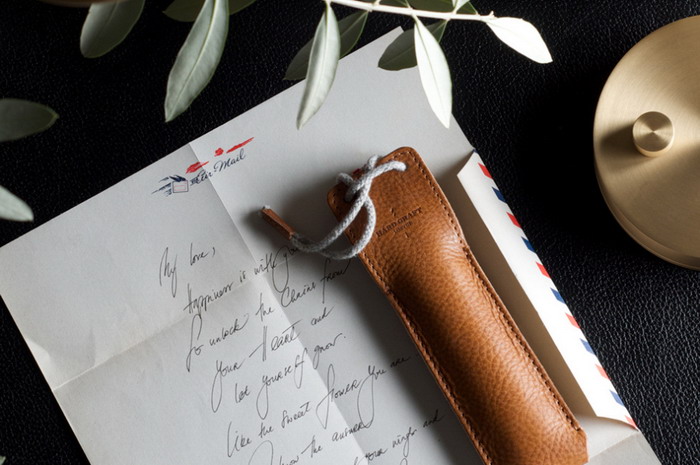 Air Mail
My love,
Happiness is with you
So unlock the Chains from
your Heart and
let yourself grow.
like the sweet flower you are
know the answer
your wings and
HARDGRAFT